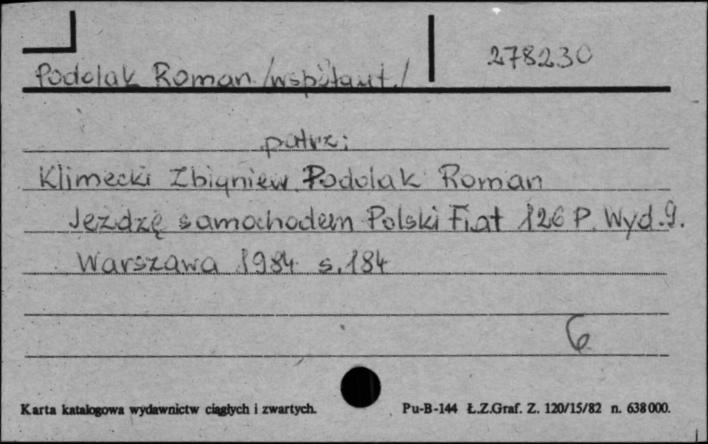 278230
Podolak Roman /współaut./
patrz:
Klimecki Zbigniew, Podolak Roman
Jeżdżę samochodem Polski Fiat 126 P. Wyd. 9.
Warszawa 1984 s. 184
6
Karta katalogowa wydawnictw ciągłych i zwartych. Pu-B-144 Ł.Z.Graf. Z. 120/15/82 n. 638000.